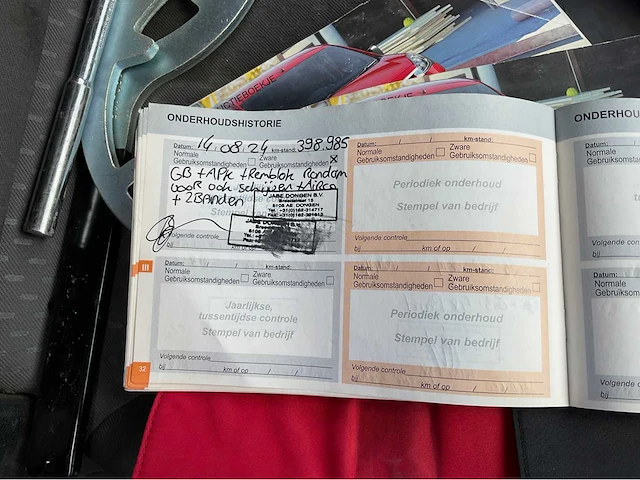 CTIEBOEKJE
EKJE
ONDERHOUDSHISTORIE
ONDERHOU
Datum: 14.08.24 km-stand: 398.985
Normale
Gebruiksomstandigheden
Zware
Gebruiksomstandigheden X
GB + APK + Remblok Rondom
voor ook schijven + Airco
+ 2 Banden
JABE DONGEN B.V.
5106 AE DONGEN
Volgende controle
bij
Datum: / / km-stand:
Normale
Gebruiksomstandigheden
Zware
Gebruiksomstandigheden
Periodiek onderhoud
Stempel van bedrijf
Volgende controle
bij km of op / /
III
Datum: / / km-stand:
Normale
Gebruiksomstandigheden
Zware
Gebruiksomstandigheden
Jaarlijkse,
tussentijdse controle
Stempel van bedrijf
Volgende controle
bij km of op / /
Datum: / / km-stand:
Normale
Gebruiksomstandigheden
Zware
Gebruiksomstandigheden
Periodiek onderhoud
Stempel van bedrijf
Volgende controle
bij km of op / /
32
Datum:
Normale
Gebruiksom
Volgende
bij
Datum:
Normale
Gebruiksom
Volgende
bij